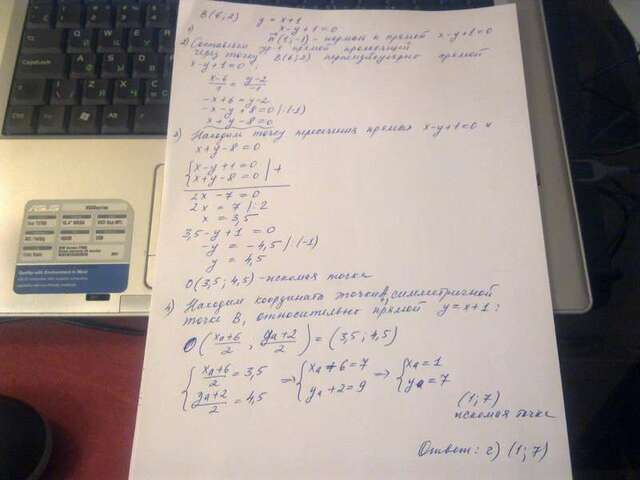 B(6;2) y = x+1
1) x-y+1=0
n(1;-1) - нормаль к прямой x-y+1=0
2) Составляем ур-е прямой проходящей
через точку B(6;2) перпендикулярно прямой
x-y+1=0:
(x-6)/1 = (y-2)/-1
-x+6 = y-2
-x-y+8=0 |·(-1)
x+y-8=0
3) Находим точку пересечения прямых x-y+1=0 и
x+y-8=0
{x-y+1=0
{x+y-8=0 | +
2x-7=0
2x=7 |:2
x=3,5
3,5-y+1=0
-y=-4,5 |·(-1)
y=4,5
O(3,5; 4,5) - искомая точка
4) Находим координаты точки A, симметричной
точке B, относительно прямой y=x+1:
O((xa+6)/2, (ya+2)/2) = (3,5; 4,5)
{(xa+6)/2=3,5 ⇒ {xa+6=7 ⇒ {xa=1
{(ya+2)/2=4,5 {ya+2=9 {ya=7
(1;7)
искомая точка
Ответ: г) (1;7)
ASUS